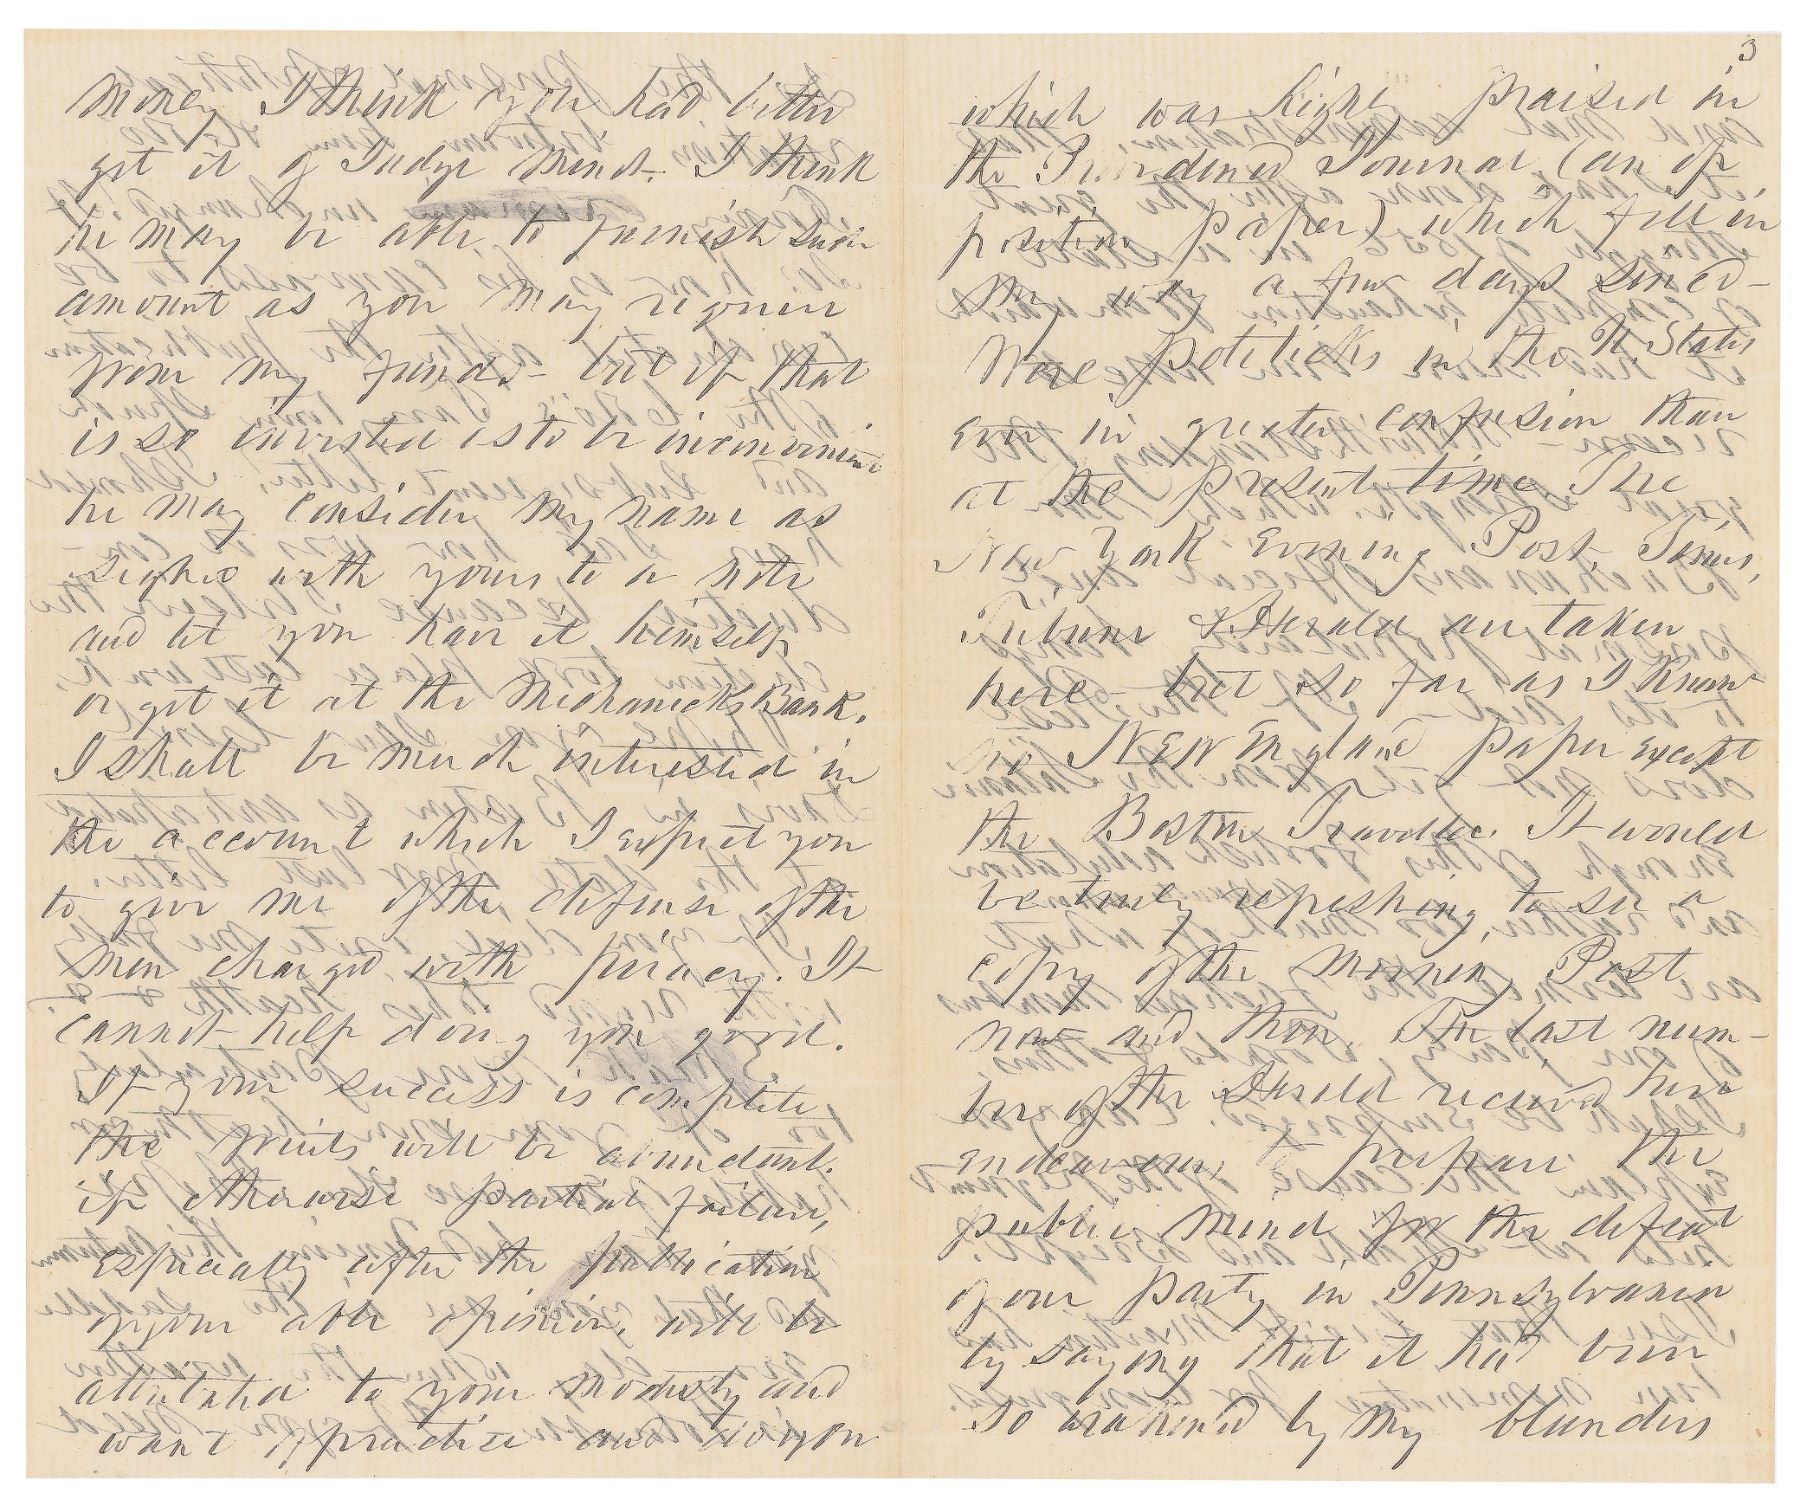 money I think you had better
get it of Judge Ames. I think
he may be able to furnish such
amount as you may require
from my funds - but if that
is so invested as to be inconvenient
he may consider my name as
signed with yours to a note
and let you have it himself
or get it at the Mechanicks Bank.
I shall be much interested in
the account which I expect you
to give me of the defense of the
men charged with piracy. It
cannot help doing you good.
If your success is complete,
the fruits will be abundant.
if otherwise partial failure,
especially after the publication
of your able opinion, will be
attributed to your modesty and
want of practice and do you
3
which was highly praised in
the Providence Journal (an op
position paper) which fell in
my way a few days since -
Were politicks in the U. States
ever in greater confusion than
at the present time. The
New York Evening Post, Times,
Tribune & Herald are taken
here - but so far as I know
no New England paper except
the Boston Traveller. It would
be truly refreshing to see a
copy of the Morning Post
now and then. The last num-
ber of the Herald received here
endeavours to prepare the
public mind for the defeat
of our party in Pennsylvania
by saying that it had been
so weakened by my blunders